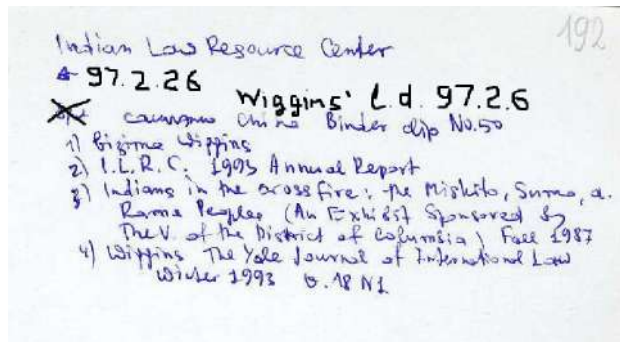 192
Indian Law Resource Center
97.2.26
Wiggins' L.d. 97.2.6
China Binder clip No.50
1) Wiggins
2) I.L.R.C. 1993 Annual Report
3) Indians in the crossfire: the Miskito, Sumo, a.
Rama Peoples (An Exhibit Sponsored by
The V. of the District of Columbia) Fall 1987
4) Wiggins The Yale Journal of International Law
Winter 1993 v. 18 N1